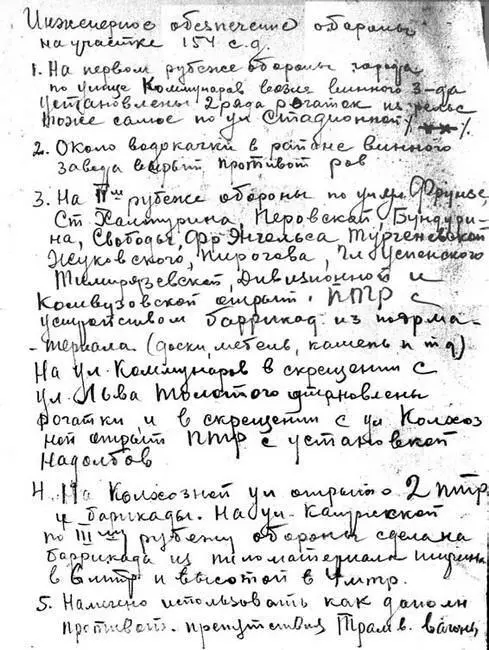 Инженерное обезпечение обороны
на участке 154 с.д.
1. На первом рубеже обороны города
по улице Коммунаров возля винного з-да
установлены 2 ряда рогаток из рельс
тоже самое по ул Стадионной
2. Около водокачки в раионе винного
завода вырыт противот ров
3. На IIом рубеже обороны по ул.ул. Фрунзе,
Ст Халтурина, Перовской, Бундури-
на, Свободы, Фр Энгельса Тургеневской
Жуковского, Пирогова, Гл Успенского
Тимирязевской, Дивизионной и
Комвузовской открыт ПТР с
устройством баррикад из подрма-
-териала. (доски, мебель, камень и т д)
На ул. Коммунаров в скрещении с
ул. Льва Толстого установлены
рогатки и в скрещении с ул Колхоз
ной открыт ПТР с установкой
надолбов
4. На Колхозной ул открыто 2 птр
и барикады. На ул. Калужской
по IIIму рубежу обороны сделана
баррикада из пиломатериала ширина
в 6 мтр и высотой в 4 мтр.
5. Намечено использовать как дополн
противот. препятствия Трамв. вагоны